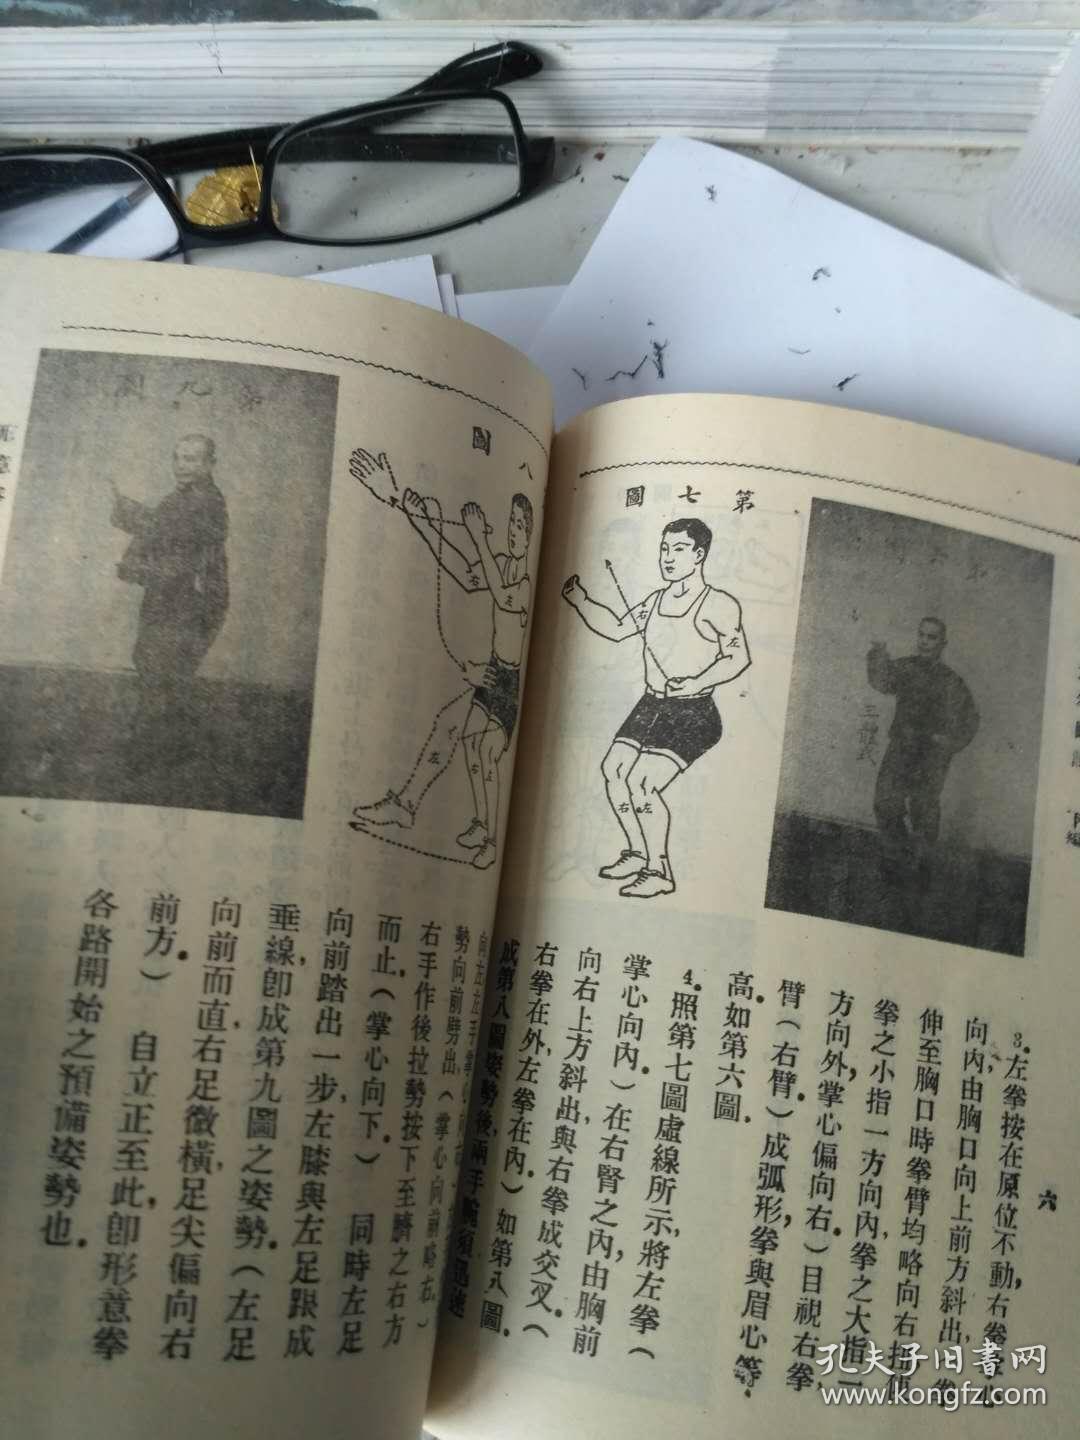 六
第七圖
三體式
3.左拳按在原位不動，右拳掌心
向內，由胸口向上前方斜出，拳
伸至胸口時拳臂均略向右扭使
拳之小指一方向內，拳之大指一
方向外，掌心偏向右。）目視右拳，
臂（右臂。）成弧形，拳與眉心等
高。如第六圖。
4.照第七圖虛線所示，將左拳（
掌心向內）在右腎之內，由胸前
向右上方斜出，與右拳成交叉。（
右拳在外，左拳在內。）如第八圖。
成第八圖姿勢後，兩手
勢向前劈出，（掌心向前略右，）
右手作後拉勢按下至臍之右方
而止。（掌心向下。）同時左足
向前踏出一步，左膝與左足跟成
垂線，卽成第九圖之姿勢。（左足
向前而直，右足微橫，足尖偏向右
前方。）自立正至此，卽形意拳
各路開始之預備姿勢也。
右
左
右
左
八圖
右
左
左
右
第九圖
孔夫子旧書网
www.kongfz.com